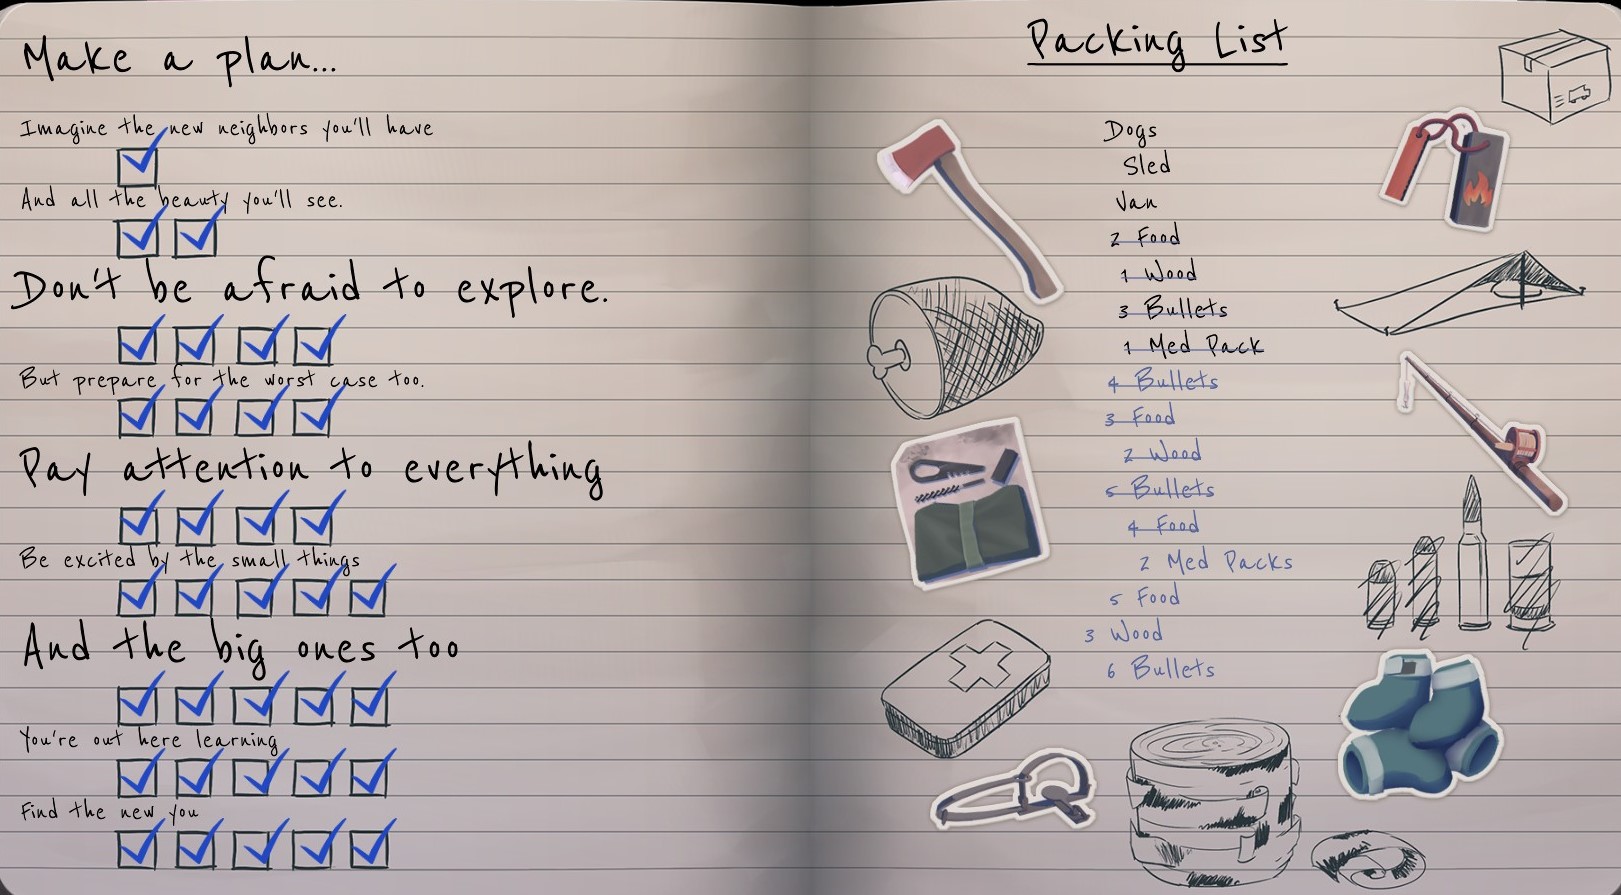 Make a plan...
Imagine the new neighbors you'll have
And all the beauty you'll see.
Don't be afraid to explore.
But prepare for the worst case too.
Pay attention to everything
Be excited by the small things
And the big ones too
You're out here learning
Find the new you
Packing List
Dogs
Sled
Van
2 Food
1 Wood
3 Bullets
1 Med Pack
4 Bullets
3 Food
2 Wood
5 Bullets
4 Food
2 Med Packs
5 Food
3 Wood
6 Bullets